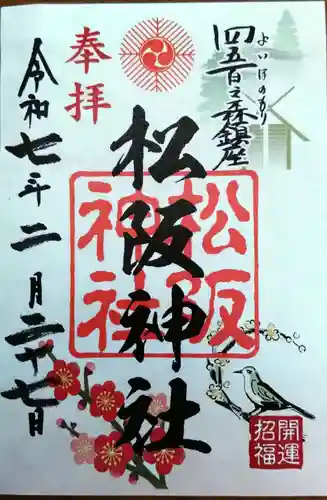 四五百之森鎮座
よいほのもり
奉拝
松阪神社
松阪神社
令和七年二月二十七日
開運招福